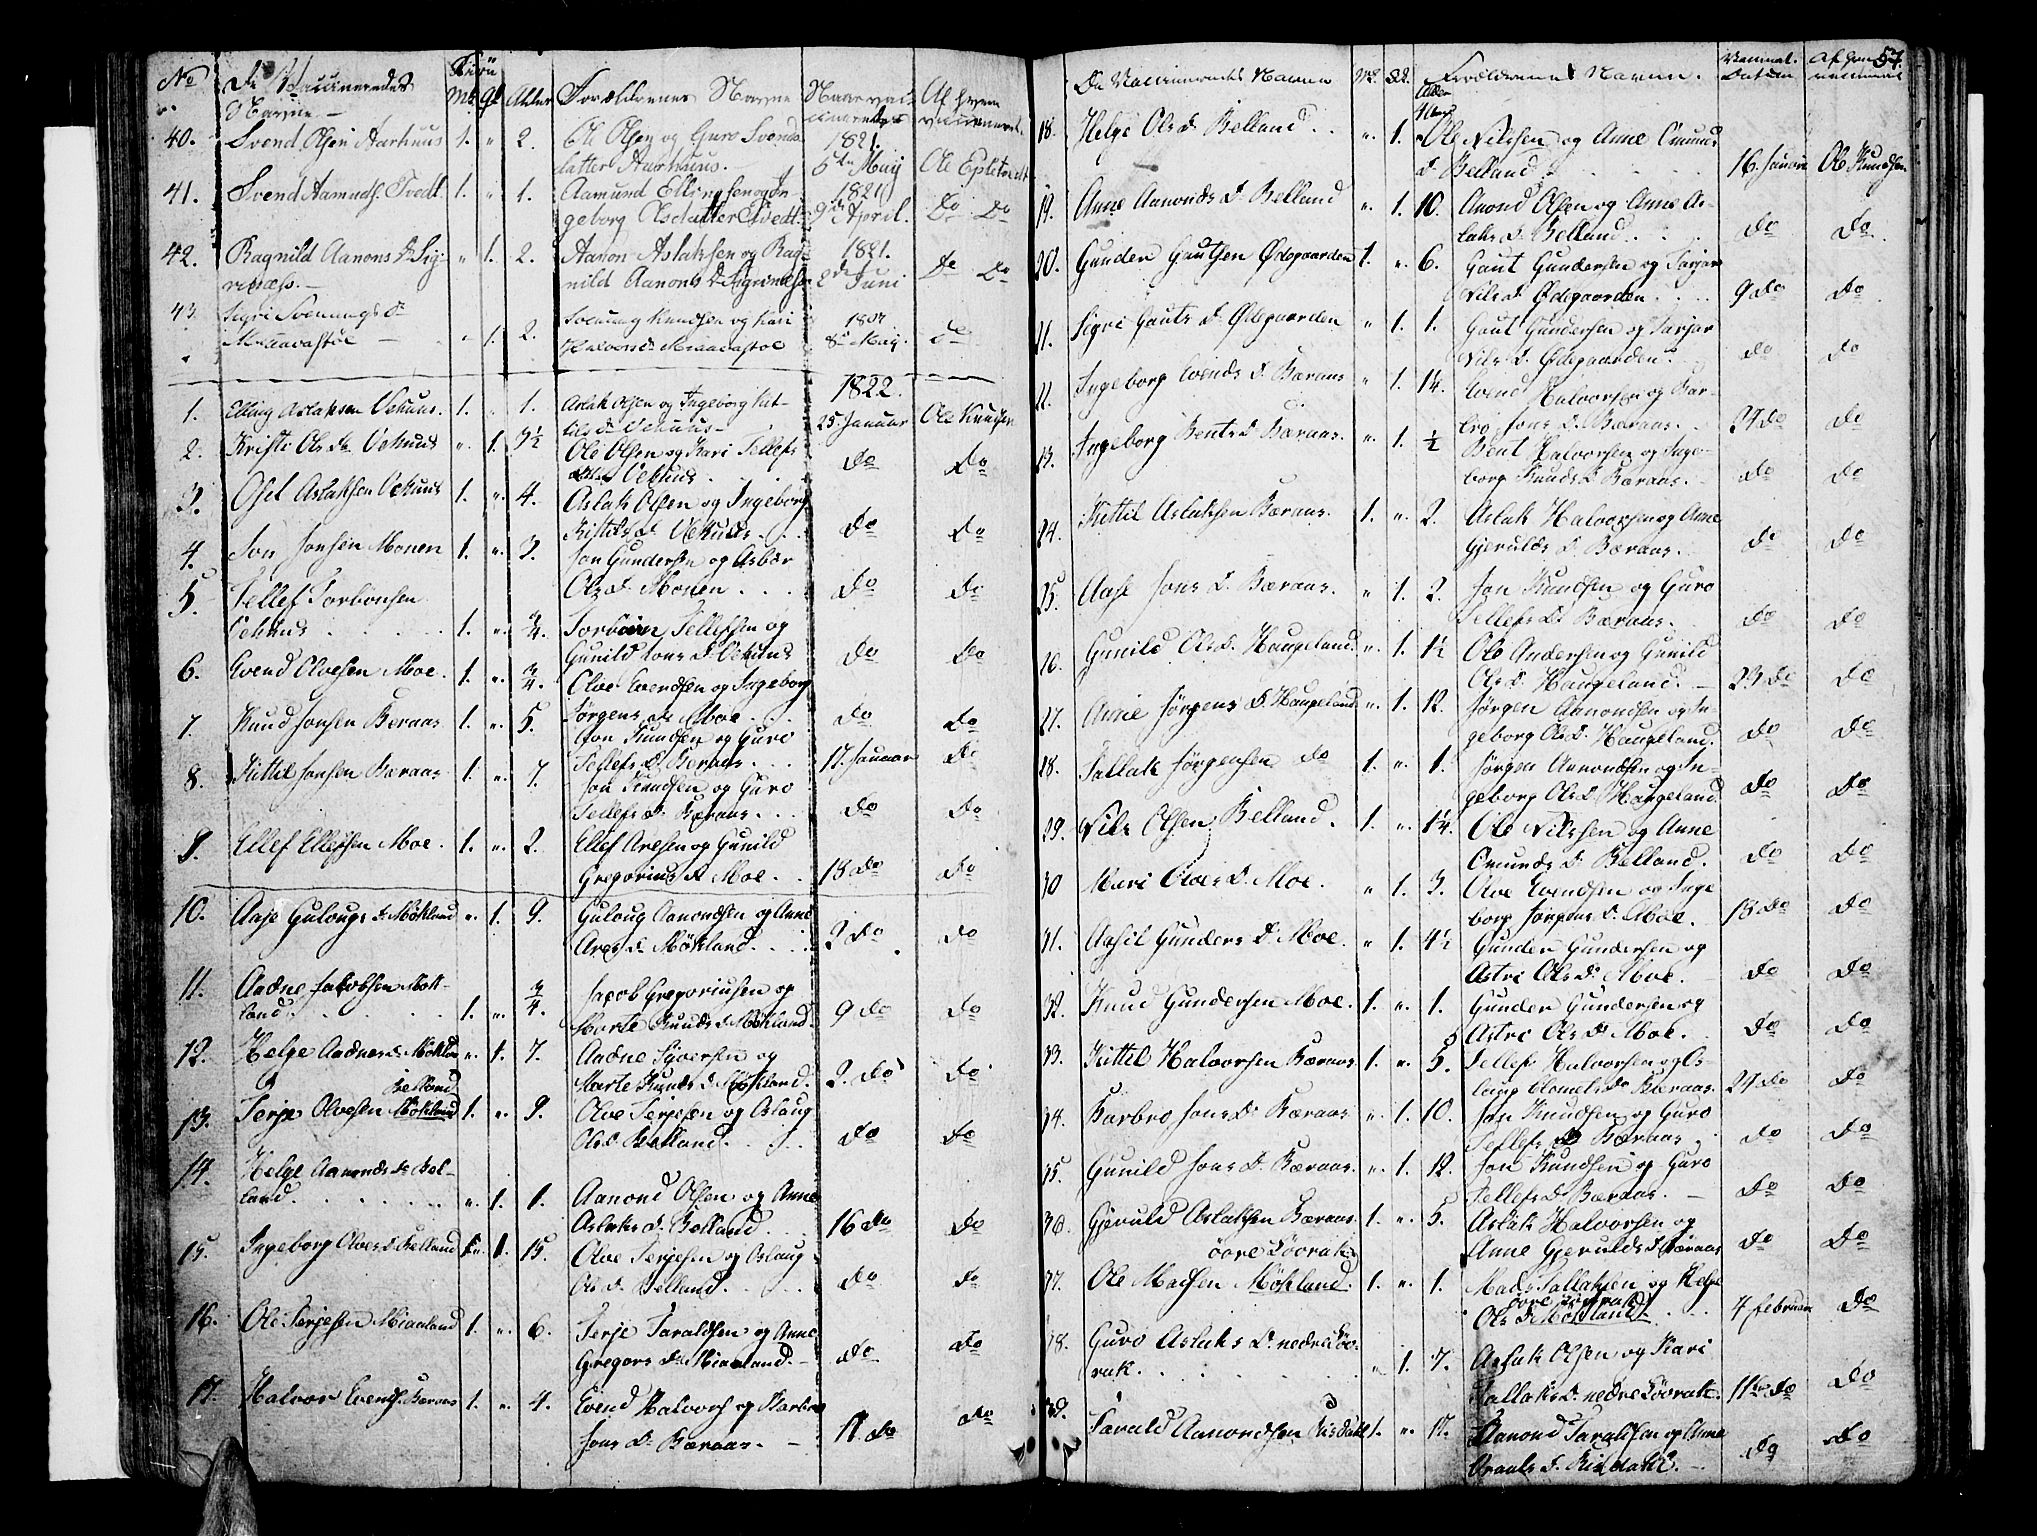 No
De Vaccineredes
Navne
Mk. Qk. Alder
Forældrenes Navne
Naar vac-
cinerede
Af hvem
vaccineret
40. Svend Olsen Aarhuus 1. " 2. Ole Olsen og Guro Svends 1821.
datter Aarhuus. 5te Maij Ole Eptetvedt
41. Svend Aamunds. Tvedt 1. " 1. Aamund Ellingsen og In- 1821
geborg Olsdatter Tvedt. 9de April. Do Do
42. Ragnild Aanons D. Sig- " 1. 2. Aanon Aslaksen og Rag- 1821.
nild Aanons D. 2de Juni Do Do
43. Sigri Svenungs D. Svenung Knudsen og Kari
" 1. 2. Halvorsd. 8de Maij. do
1822.
1. Elling Aslaksen Vehuus. 1. " 1. Aslak Olsen og Ingeborg Kit-
tils D. Vehuus 25. Januar Ole Knudsen
2. Kristi Ols Dr Vehuus " 1. 3½ Ole Olsen og Kari Tellefs
Vehuus Do Do
3. Osel Aslaksen Vehuus 1. " 4. Aslak Olsen og Ingeborg
Kittils D. Vehuus. Do Do
4. Jon Jonsen Monen 1. " 3. Jon Gundersen og Asbør
Ols D. Monen Do Do
5. Tellef Torbonsen
Vehuus 1. " ¾. Torbiørn Tellefsen og
Gunild Jons D. Vehuus Do Do
6. Evend Olvesen Moe. 1. " ¾. Olve Evendsen og Ingeborg
Jørgens D. Moe. Do Do
7. Knud Jonsen Beraas 1. " 5. Jon Knudsen og Guro
Tellefs D. Beraas. 17. Januar Do
8. Kittil Jonsen Bæraas 1. " 7. Jon Knudsen og Guro
Tellefs D. Bæraas. Do Do
9. Ellef Ellefsen Moe. 1. " 2. Ellef Aresen og Gunild
Gregorius D. Moe. 18 Do Do
10. Aase Gulougs D. Møkland " 1. 9. Guloug Aanondsen og Anne
Ares D. Møkland. 2 Do Do
11. Aadne Jakobsen Møk-
land. 1. " ¾. Jacob Gregoriusen og
Marte Knuds D. Møkland. 9 Do Do
12. Helge Aadnes D. Møkland " 1. 7. Aadne Syversen og
Marte Knuds D. Møkland. 2. Do Do
Belland
13. Terje Olvesen Møkland 1. " 9. Olve Terjesen og Aslaug
Ols D. Belland. Do Do
14. Helge Aanonds D. Bel-
land. " 1. 1. Aanond Olsen og Anne
Aslaks D. Belland 16 Do Do
15. Ingeborg Olves D. Belland " 1. 15. Olve Terjesen og Aslaug
Ols D. Belland. Do Do
16. Ole Terjesen Miaaland 1. " 6. Terje Taraldsen og Anne
Gregors D. Miaaland. Do Do
17. Halvor Evends. Bæraas 1. " 4. Evend Halvors og Barbro
Jons D. Bæraas. 17. Do Do
57.
De Vaccineredes Navne Mk. Qk. Alder Forældrenes Navne. Vaccinat.
Datum Af hvem
vaccineret
18. Helge Ols D. Belland " 1. Ole Nilssen og Anne Omund
D. Belland 16. Januar Ole Knudsen
19. Anne Aanonds D. Belland " 1. 10. Anond Olsen og Anne As-
laks D. Belland Do Do
20. Gunder Gautsen Ødegaarden 1. " 6. Gaut Gundersen og Tarjer
Nils D. Ødegaarden 9 Do Do
21. Sigri Gauts D. Ødegaarden " 1. 1. Gaut Gundersen og Tarjer
Nils D. Ødegaarden. Do Do
22. Ingeborg Evends D. Bæraas " 1. 14. Evend Halvorsen og Bar-
bro Jons D. Bæraas. 27 Do Do
23. Ingeborg Bents D. Bæraas. " 1. ½ Bent Halvorsen og Inge-
borg Knuds D. Bæraas. Do Do
24. Kittil Aslaksen Bæraas. 1. " 2. Aslak Halvorsen og Anne
Gjerulds D. Bæraas. Do Do
25. Aase Jons D. Bæraas. " 1. 2. Jon Knudsen og Guro
Tellefs D. Bæraas. Do Do
26. Gunild Ols D. Haugeland. " 1. 1½ Ole Andersen og Gunild
Ols D. Haugeland. 23 Do Do
27. Anne Jørgens D. Haugeland " 1. 12. Jørgen Aanondsen og In-
geborg Ols D. Haugeland. Do Do
28. Tallak Jørgensen Do 1. " 1. Jørgen Aanondsen og In-
geborg Ols D. Haugeland. Do Do
29. Nils Olsen Belland. 1. " 14. Ole Nilssen og Anne
Omunds D. Belland. Do Do
30 Mari Olves D. Moe. " 1. 3. Olve Evendsen og Inge
borg Jørgens D. Moe. 18 Do Do
31. Aasil Gunders D. Moe. " 1. 4½ Gunder Gundersen og
Astri Ols D. Moe. Do Do
32. Knud Gundersen Moe. 1. " 1. Gunder Gundersen og
Astri Ols D. Moe. Do Do
33. Kittel Halvorsen Bæraas 1. " 5. Tellefs Halvorsen og As-
laug D. Bæraas. 27 Do Do
34. Barbro Jons D. Bæraas " 1. 10. Jon Knudsen og Guro
Tellefs D. Bæraas Do Do
35. Gunild Jons D. Bæraas. " 1. 12. Jon Knudsen og Guro
Tellefs D. Bæraas. Do Do
36. Gjeruld Aslaksen Bæraas 1. " 5. Aslak Halvorsen og
Anne Gjerulds D. Bæraas Do Do
øvre Løvrak
37. Ole Madsen Møkland. 1. " 1. Mads Tallaksen og Helge
øvre Løvrak
Ols D. Møkland 4 Februar Do
38. Guro Aslaks D. nedre Løv-
rak. " 1. 7. Aslak Olsen og Kari
Tallaks D. nedre Løvrak. 11te Do Do
39. Tarald Aanondsen Risdahl 1. " 17. Aanond Taraldsen og Anne
D. Risdahl. Do Do